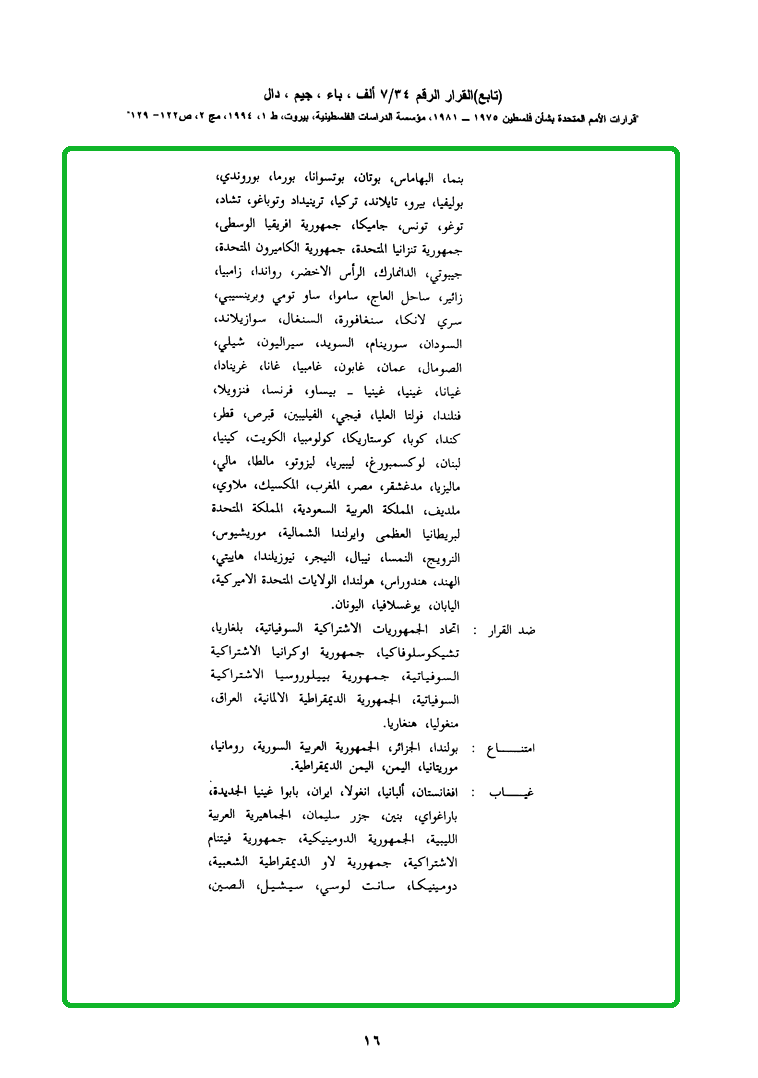 (تابع)القرار الرقم ٧/٣٤ ألف ، باء ، جيم ، دال
"قرارات الأمم المتحدة بشأن فلسطين ١٩٧٥ ــ ١٩٨١، مؤسسة الدراسات الفلسطينية، بيروت، ط ١، ١٩٩٤، مج ٢، ص١٢٢- ١٢٩"
بنما، البهاماس، بوتان، بوتسوانا، بورما، بوروندي،
بوليفيا، بيرو، تايلاند، تركيا، ترينيداد وتوباغو، تشاد،
توغو، تونس، جاميكا، جمهورية افريقيا الوسطى،
جمهورية تنزانيا المتحدة، جمهورية الكاميرون المتحدة،
جيبوتي، الدانمارك، الرأس الاخضر، رواندا، زامبيا،
زائير، ساحل العاج، ساموا، ساو تومي وبرينسيبي،
سري لانكا، سنغافورة، السنغال، سوازيلاند،
السودان، سورينام، السويد، سيراليون، شيلي،
الصومال، عمان، غابون، غامبيا، غانا، غرينادا،
غيانا، غينيا، غينيا ـ بيساو، فرنسا، فنزويلا،
فنلندا، فولتا العليا، فيجي، الفيليبين، قبرص، قطر،
كندا، كوبا، كوستاريكا، كولومبيا، الكويت، كينيا،
لبنان، لوكسمبورغ، ليبيريا، ليزوتو، مالطا، مالي،
ماليزيا، مدغشقر، مصر، المغرب، المكسيك، ملاوي،
ملديف، المملكة العربية السعودية، المملكة المتحدة
لبريطانيا العظمى وايرلندا الشمالية، موريشيوس،
النرويج، النمسا، نيبال، النيجر، نيوزيلندا، هاييتي،
الهند، هندوراس، هولندا، الولايات المتحدة الاميركية،
اليابان، يوغسلافيا، اليونان.
ضد القرار : اتحاد الجمهوريات الاشتراكية السوفياتية، بلغاريا،
تشيكوسلوفاكيا، جمهورية اوكرانيا الاشتراكية
السوفياتية، جمهورية بييلوروسيا الاشتراكية
السوفياتية، الجمهورية الديمقراطية الالمانية، العراق،
منغوليا، هنغاريا.
امتنــــــاع : بولندا، الجزائر، الجمهورية العربية السورية، رومانيا،
موريتانيا، اليمن، اليمن الديمقراطية.
غيــــــاب : افغانستان، ألبانيا، انغولا، ايران، بابوا غينيا الجديدة،
باراغواي، بنين، جزر سليمان، الجماهيرية العربية
الليبية، الجمهورية الدومينيكية، جمهورية فيتنام
الاشتراكية، جمهورية لاو الديمقراطية الشعبية،
دومينيكا، سانت لوسي، سيشيل، الصين،
١٦